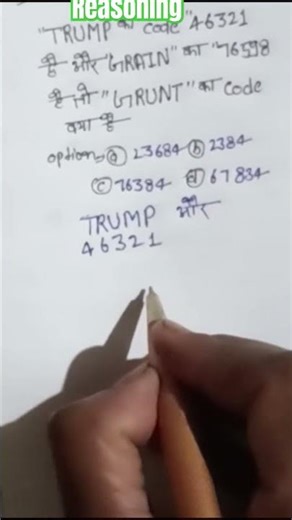 Reasoning
"TRUMP का code "46321
है और "GRAIN" का "76598
है तो "GRUNT" का code
क्या है
option-ⓐ 23684 ⓑ 2384
ⓒ 76384 ⓓ 67834
TRUMP और
46321